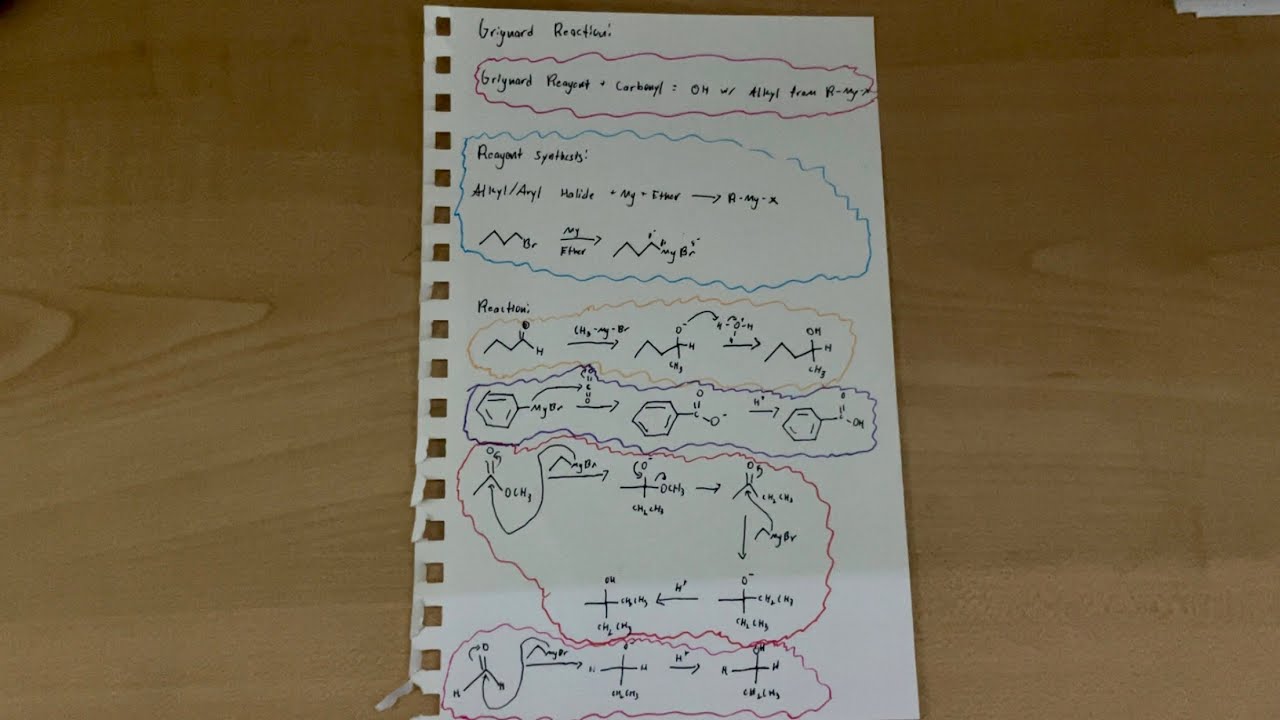 Grignard Reaction:
Grignard Reagent + Carbonyl = OH w/ Alkyl from R-Mg-X
Reagent Synthesis:
Alkyl/Aryl Halide + Mg + Ether → R-Mg-X
Br Mg Ether → MgBr
Reaction:
O H CH3-Mg-Br → O⁻ H CH3 H-O-H → OH H CH3
MgBr O C O → O C O⁻ H⁺ → C OH
O OCH3 MgBr → O⁻ OCH3 CH2CH3 → O CH2CH3
MgBr
OH CH2CH3 CH2CH3 H⁺ ← O⁻ CH2CH3 CH2CH3
O H H MgBr → H CH2CH3 H⁺ → OH H H CH2CH3